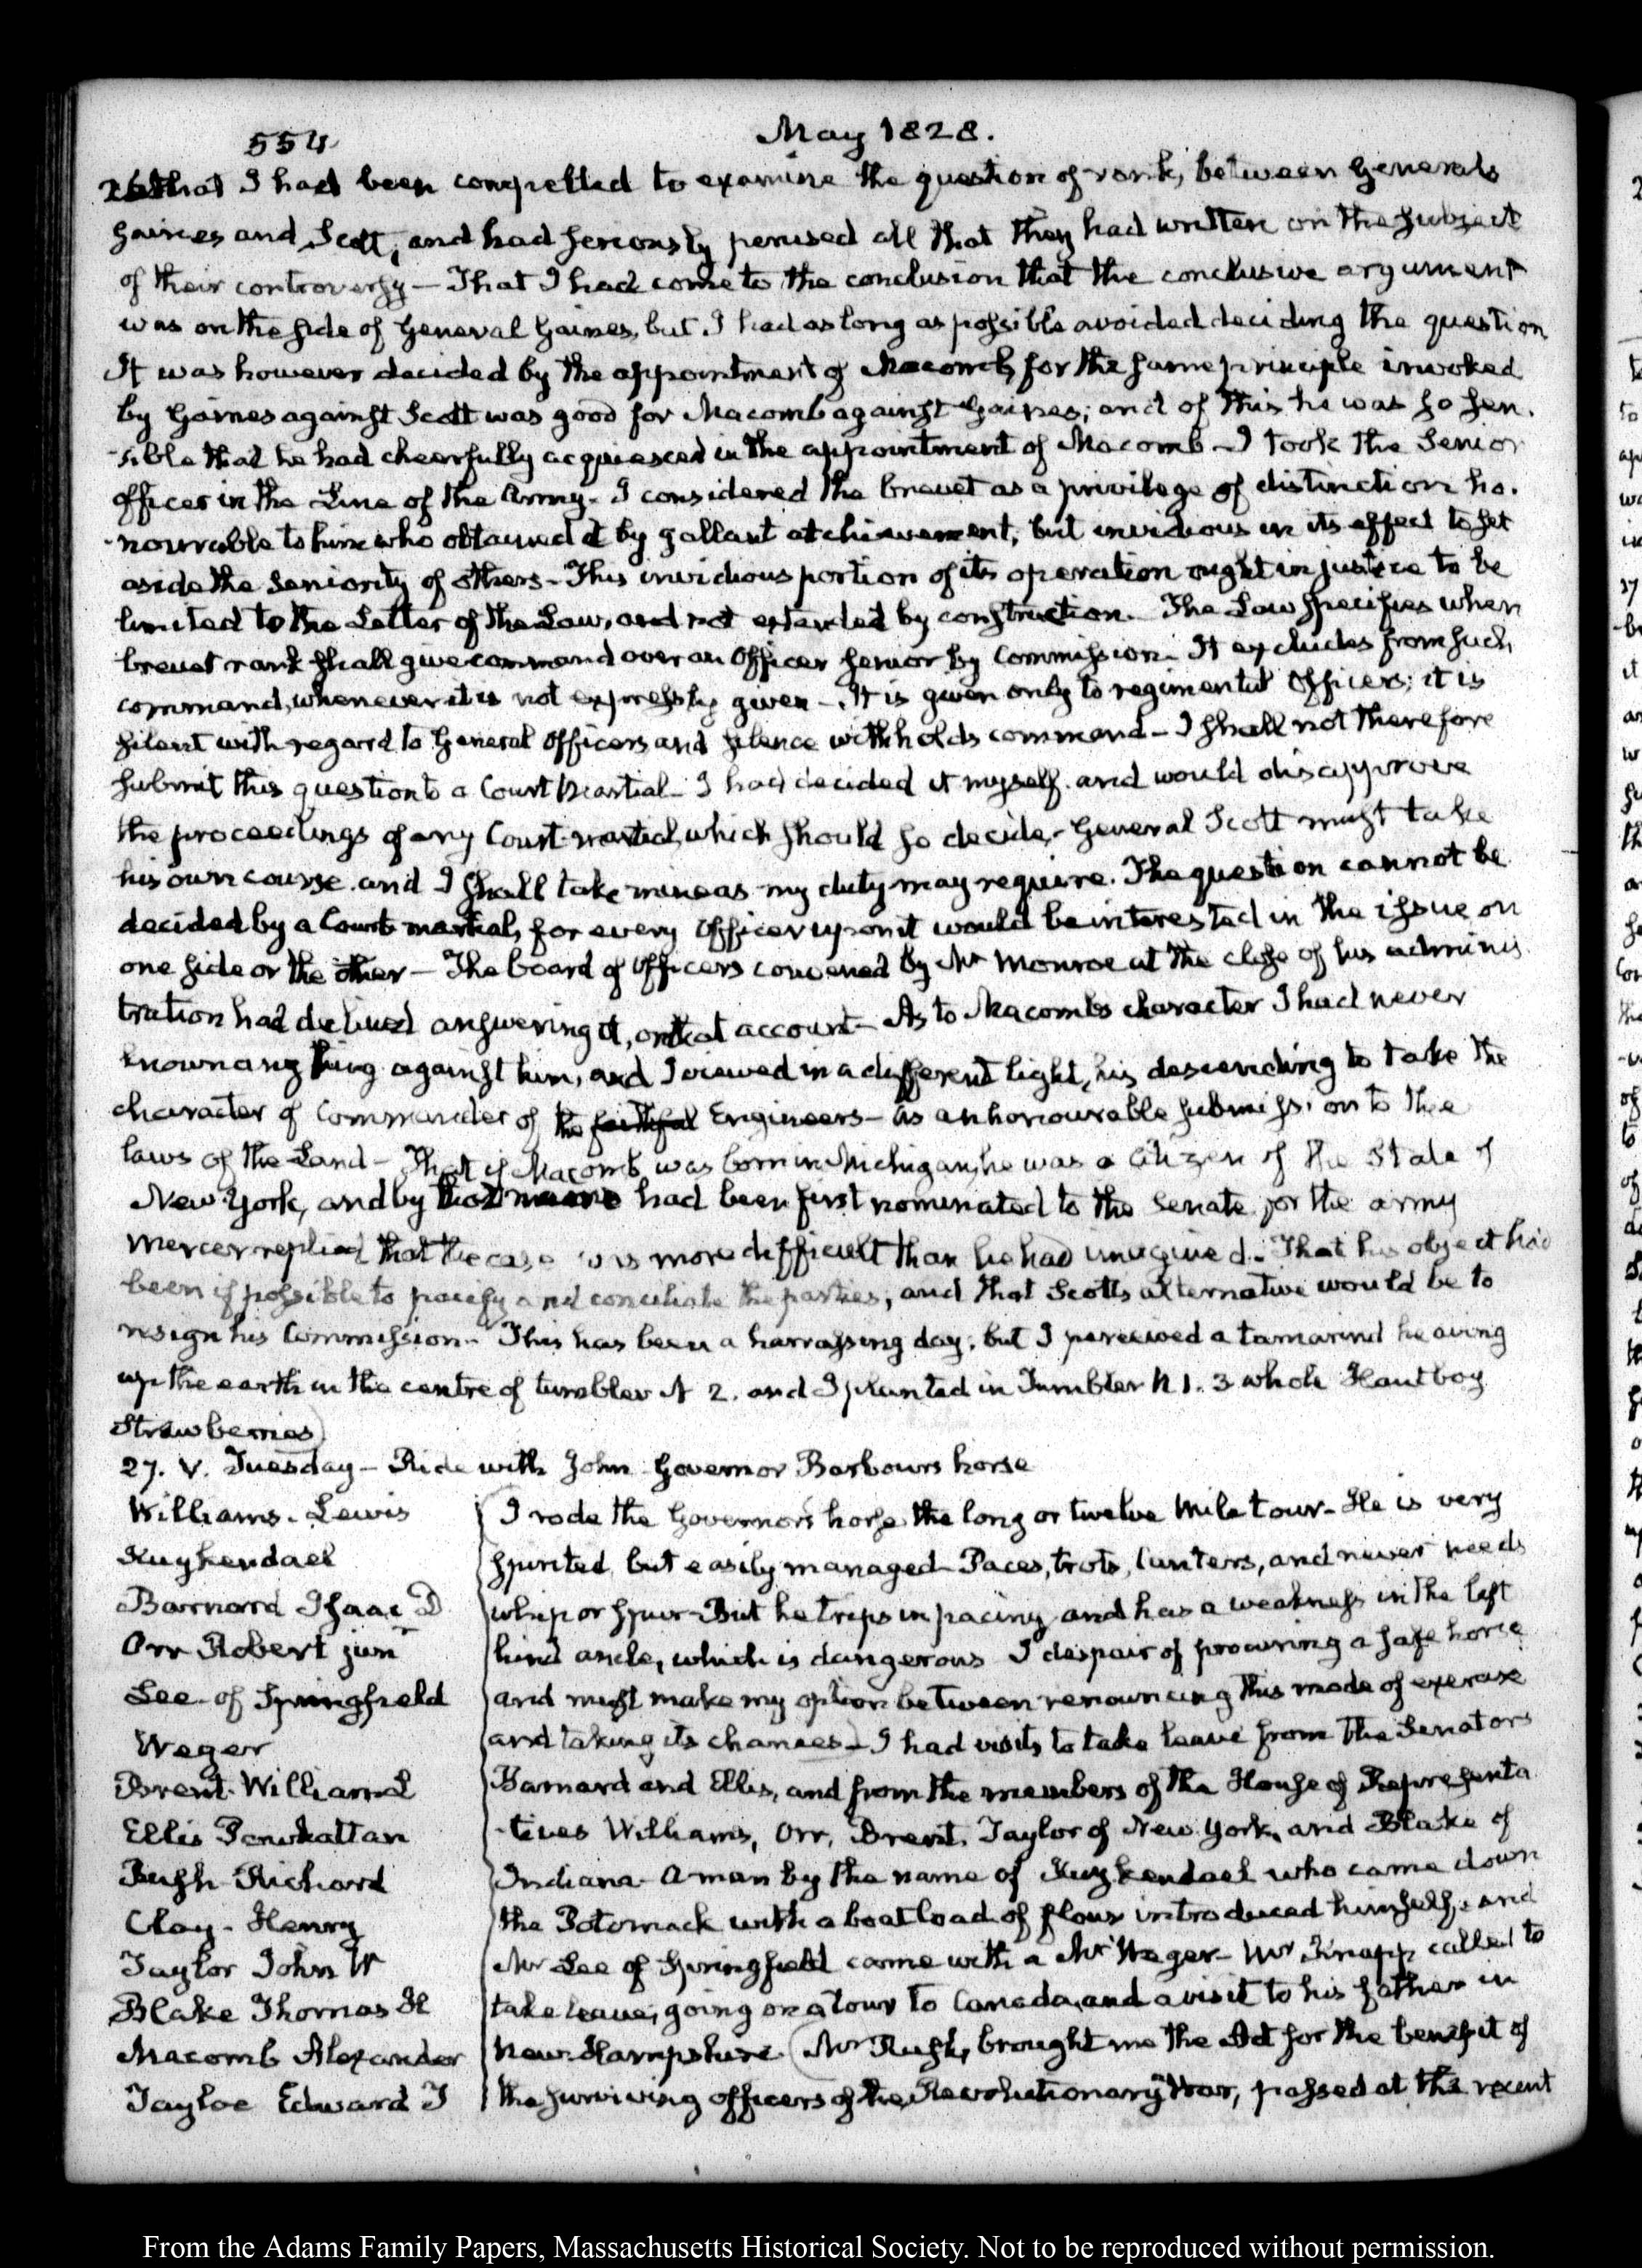 554
May 1828.
26 that I had been compelled to examine the question of rank, between Generals
Gaines and Scott, and had seriously perused all that they had written on the subject
of their controversy — That I had come to the conclusion that the conclusive argument
was on the side of General Gaines, but I had as long as possible avoided deciding the question
It was however decided by the appointment of Macomb, for the same principle invoked
by Gaines against Scott was good for Macomb against Gaines; and of this he was so sen-
-sible that he had cheerfully acquiesced in the appointment of Macomb — I took the Senior
Officer in the Line of the Army. I considered the brevet as a privilege of distinction ho-
-nourable to him who obtained it by gallant atchievement, but invidious in its effect to set
aside the Seniority of others — This invidious portion of its operation ought in justice to be
limited to the Letter of the Law, and not extended by construction. The Law specifies when
brevet rank shall give command over an Officer senior by Commission — It excludes from such
command, whenever it is not expressly given — It is given only to regimental Officers; it is
silent with regard to General Officers and silence withholds command — I shall not therefore
submit this question to a Court Martial — I had decided it myself and would disapprove
the proceedings of any Court-martial, which should so decide, — General Scott must take
his own course and I shall take mine as my duty may require. The question cannot be
decided by a Court martial, for every Officer upon it would be interested in the issue on
one side or the other — The board of Officers convened by Mr Monroe at the close of his adminis
tration had declined answering it, on that account — As to Macomb's character I had never
known any thing against him, and I viewed in a different light, his descending to take the
character of Commander of the Engineers — as an honourable submission to the
laws of the Land — That if Macomb was born in Michigan, he was a Citizen of the State of
New York, and by had been first nominated to the Senate for the army
Mercer replied that the case was more difficult than he had imagined. That his object had
been if possible to pacify and conciliate the parties; and that Scott's alternative would be to
resign his Commission — This has been a harrassing day; but I perceived a tamarind heaving
up the earth in the centre of tumbler N 2. and I planted in Tumbler N 1. 3 whole Hautboy
Strawberries)
27. V. Tuesday — Ride with John Governor Barbours horse
Williams. Lewis
Kuykendael
Barnard Isaac D
Orr Robert junr
Lee of Springfield
Weger
Brent. William L
Ellis Powhattan
Rush Richard
Clay. Henry
Taylor John W
Blake Thomas H
Macomb Alexander
Tayloe Edward T
I rode the Governor's horse the long or twelve mile tour — He is very
spirited but easily managed — Paces, trots, Canters, and never needs
whip or spur — But he trips in pacing and has a weakness in the left
hind ancle, which is dangerous I despair of procuring a safe horse
and must make my option between renouncing this mode of exercise
and taking its chances) — I had visits to take leave from the Senators
Barnard and Ellis, and from the members of the House of Representa
-tives Williams, Orr, Brent, Taylor of New York, and Blake of
Indiana. A man by the name of Kuykendael who came down
the Potomack with a boat load of flour introduced himself, and
Mr Lee of Springfield came with a Mr Weger — Mr Knapp called to
take leave, going on a tour to Canada, and a visit to his father in
New-Hampshire (Mr Rush, brought me the Act for the benefit of
the surviving officers of the Revolutionary War, passed at the recent
From the Adams Family Papers, Massachusetts Historical Society. Not to be reproduced without permission.